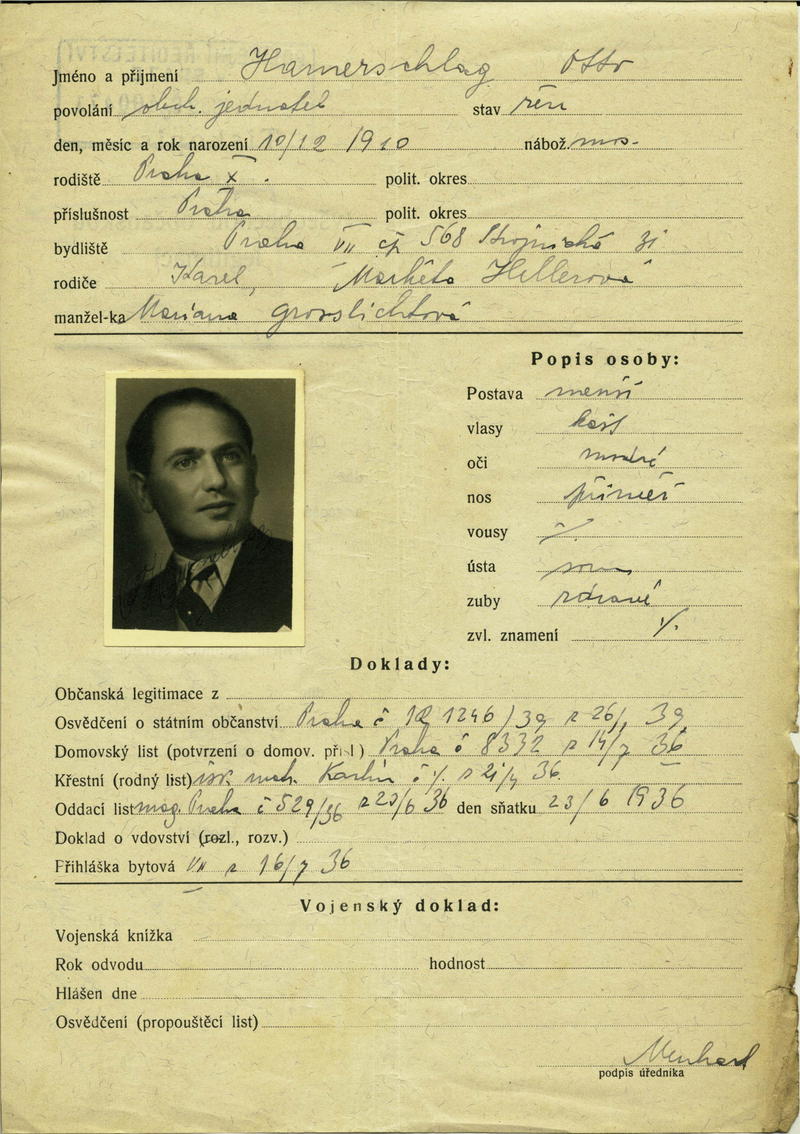 Jméno a přijmení Hamerschlag Otto
povolání obch. jednatel stav žen
den, měsíc a rok narození 10/12 1910 nábož. mos.
rodiště Praha X. polit. okres
příslušnost Praha polit. okres
bydliště Praha VII čp 568 Strojnická 31
rodiče Karel, Markéta Hellerová
manžel-ka Mariana
Popis osoby:
Postava menší
vlasy kašt
oči modré
nos přiměř
vousy ·/.
ústa
zuby zdravé
zvl. znamení ·/.
Doklady:
Občanská legitimace z
Osvědčení o státním občanství Praha č 1246/39 z 26/1 39
Domovský list (potvrzení o domov. přísl) Praha č 8332 z 14/7 36
Křestní (rodný list) isr. mat. Karlín č ·/. z 21/4 36.
Oddací list mag. Praha č 529/36 z 23/6 36 den sňatku 23/6 1936
Doklad o vdovství (rozl., rozv.)
Přihláška bytová VII z 16/7 36
Vojenský doklad:
Vojenská knížka
Rok odvodu hodnost
Hlášen dne
Osvědčení (propouštěcí list)
podpis úředníka